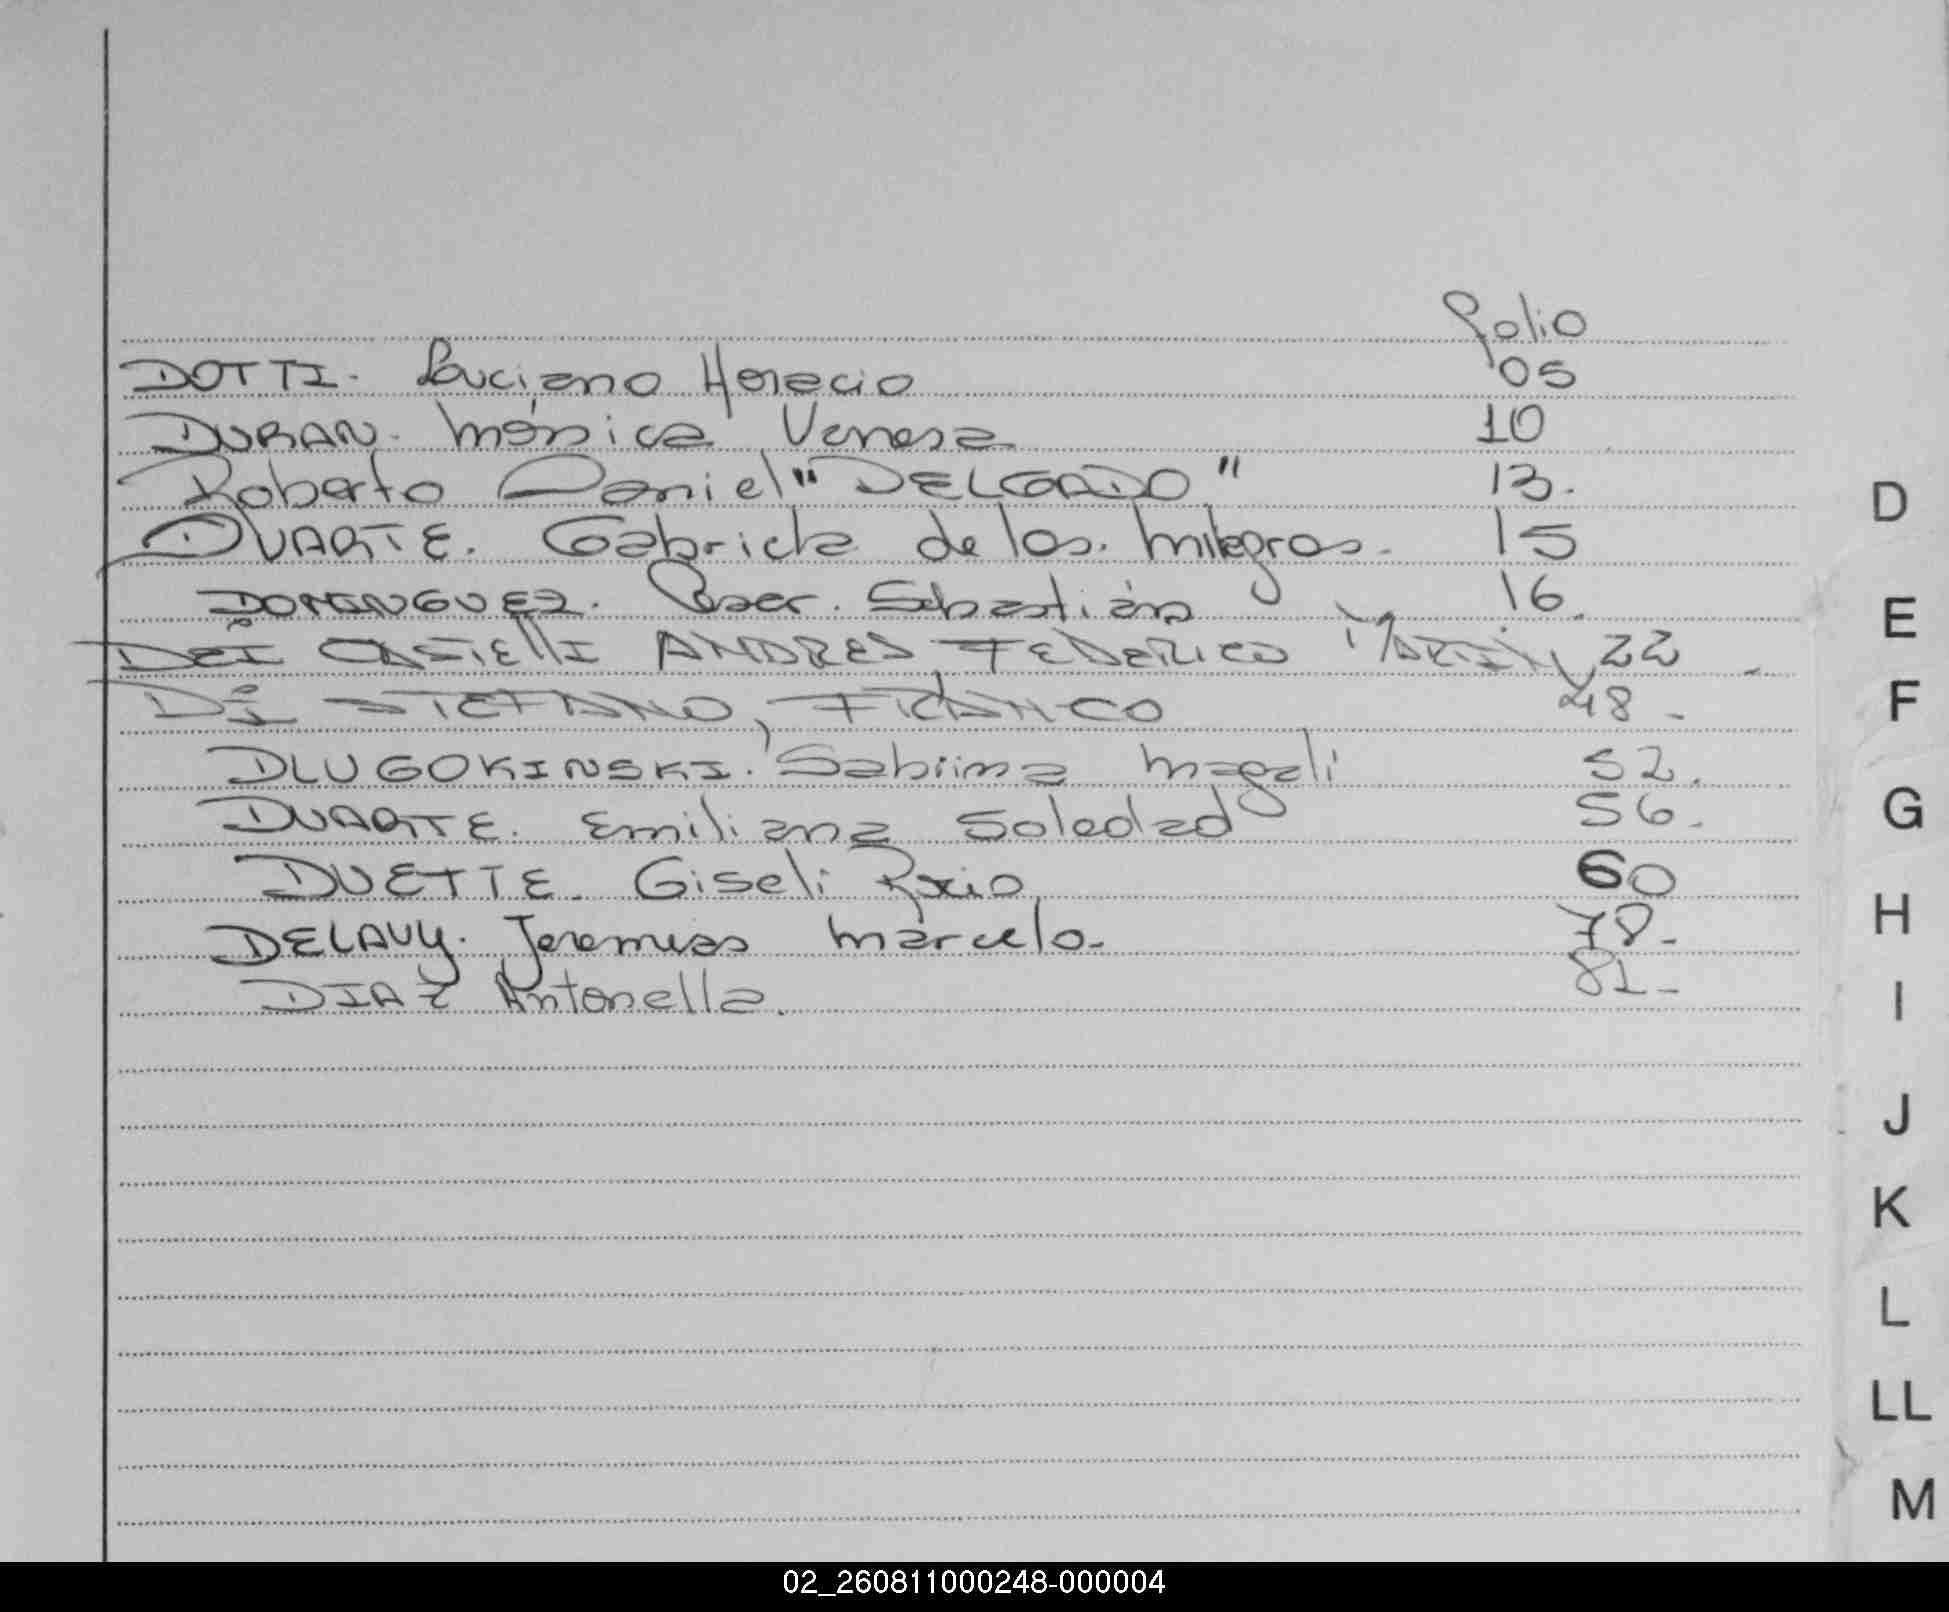 Folio
DOTTI. Luciano Horacio 05
DURAN. Mónica Vanesa 10
Roberto Daniel "DELGADO" 13.
DUARTE. Gabriela de los. Milagros. 15
DOMINGUEZ. Sebastián 16.
DEI CASTELLI ANDRES, FEDERICO MARTIN 22
DI STEFANO, FRANCO 48-
DLUGOKINSKI. Sabrina Magali 52.
DUARTE. Emiliana Soledad 56.
DUETTE. Giseli Rocio 60
DELAVY. Jeremias Marcelo. 78-
DIAZ Antonella. 81-
D
E
F
G
H
I
J
K
L
LL
M
02_260811000248-000004